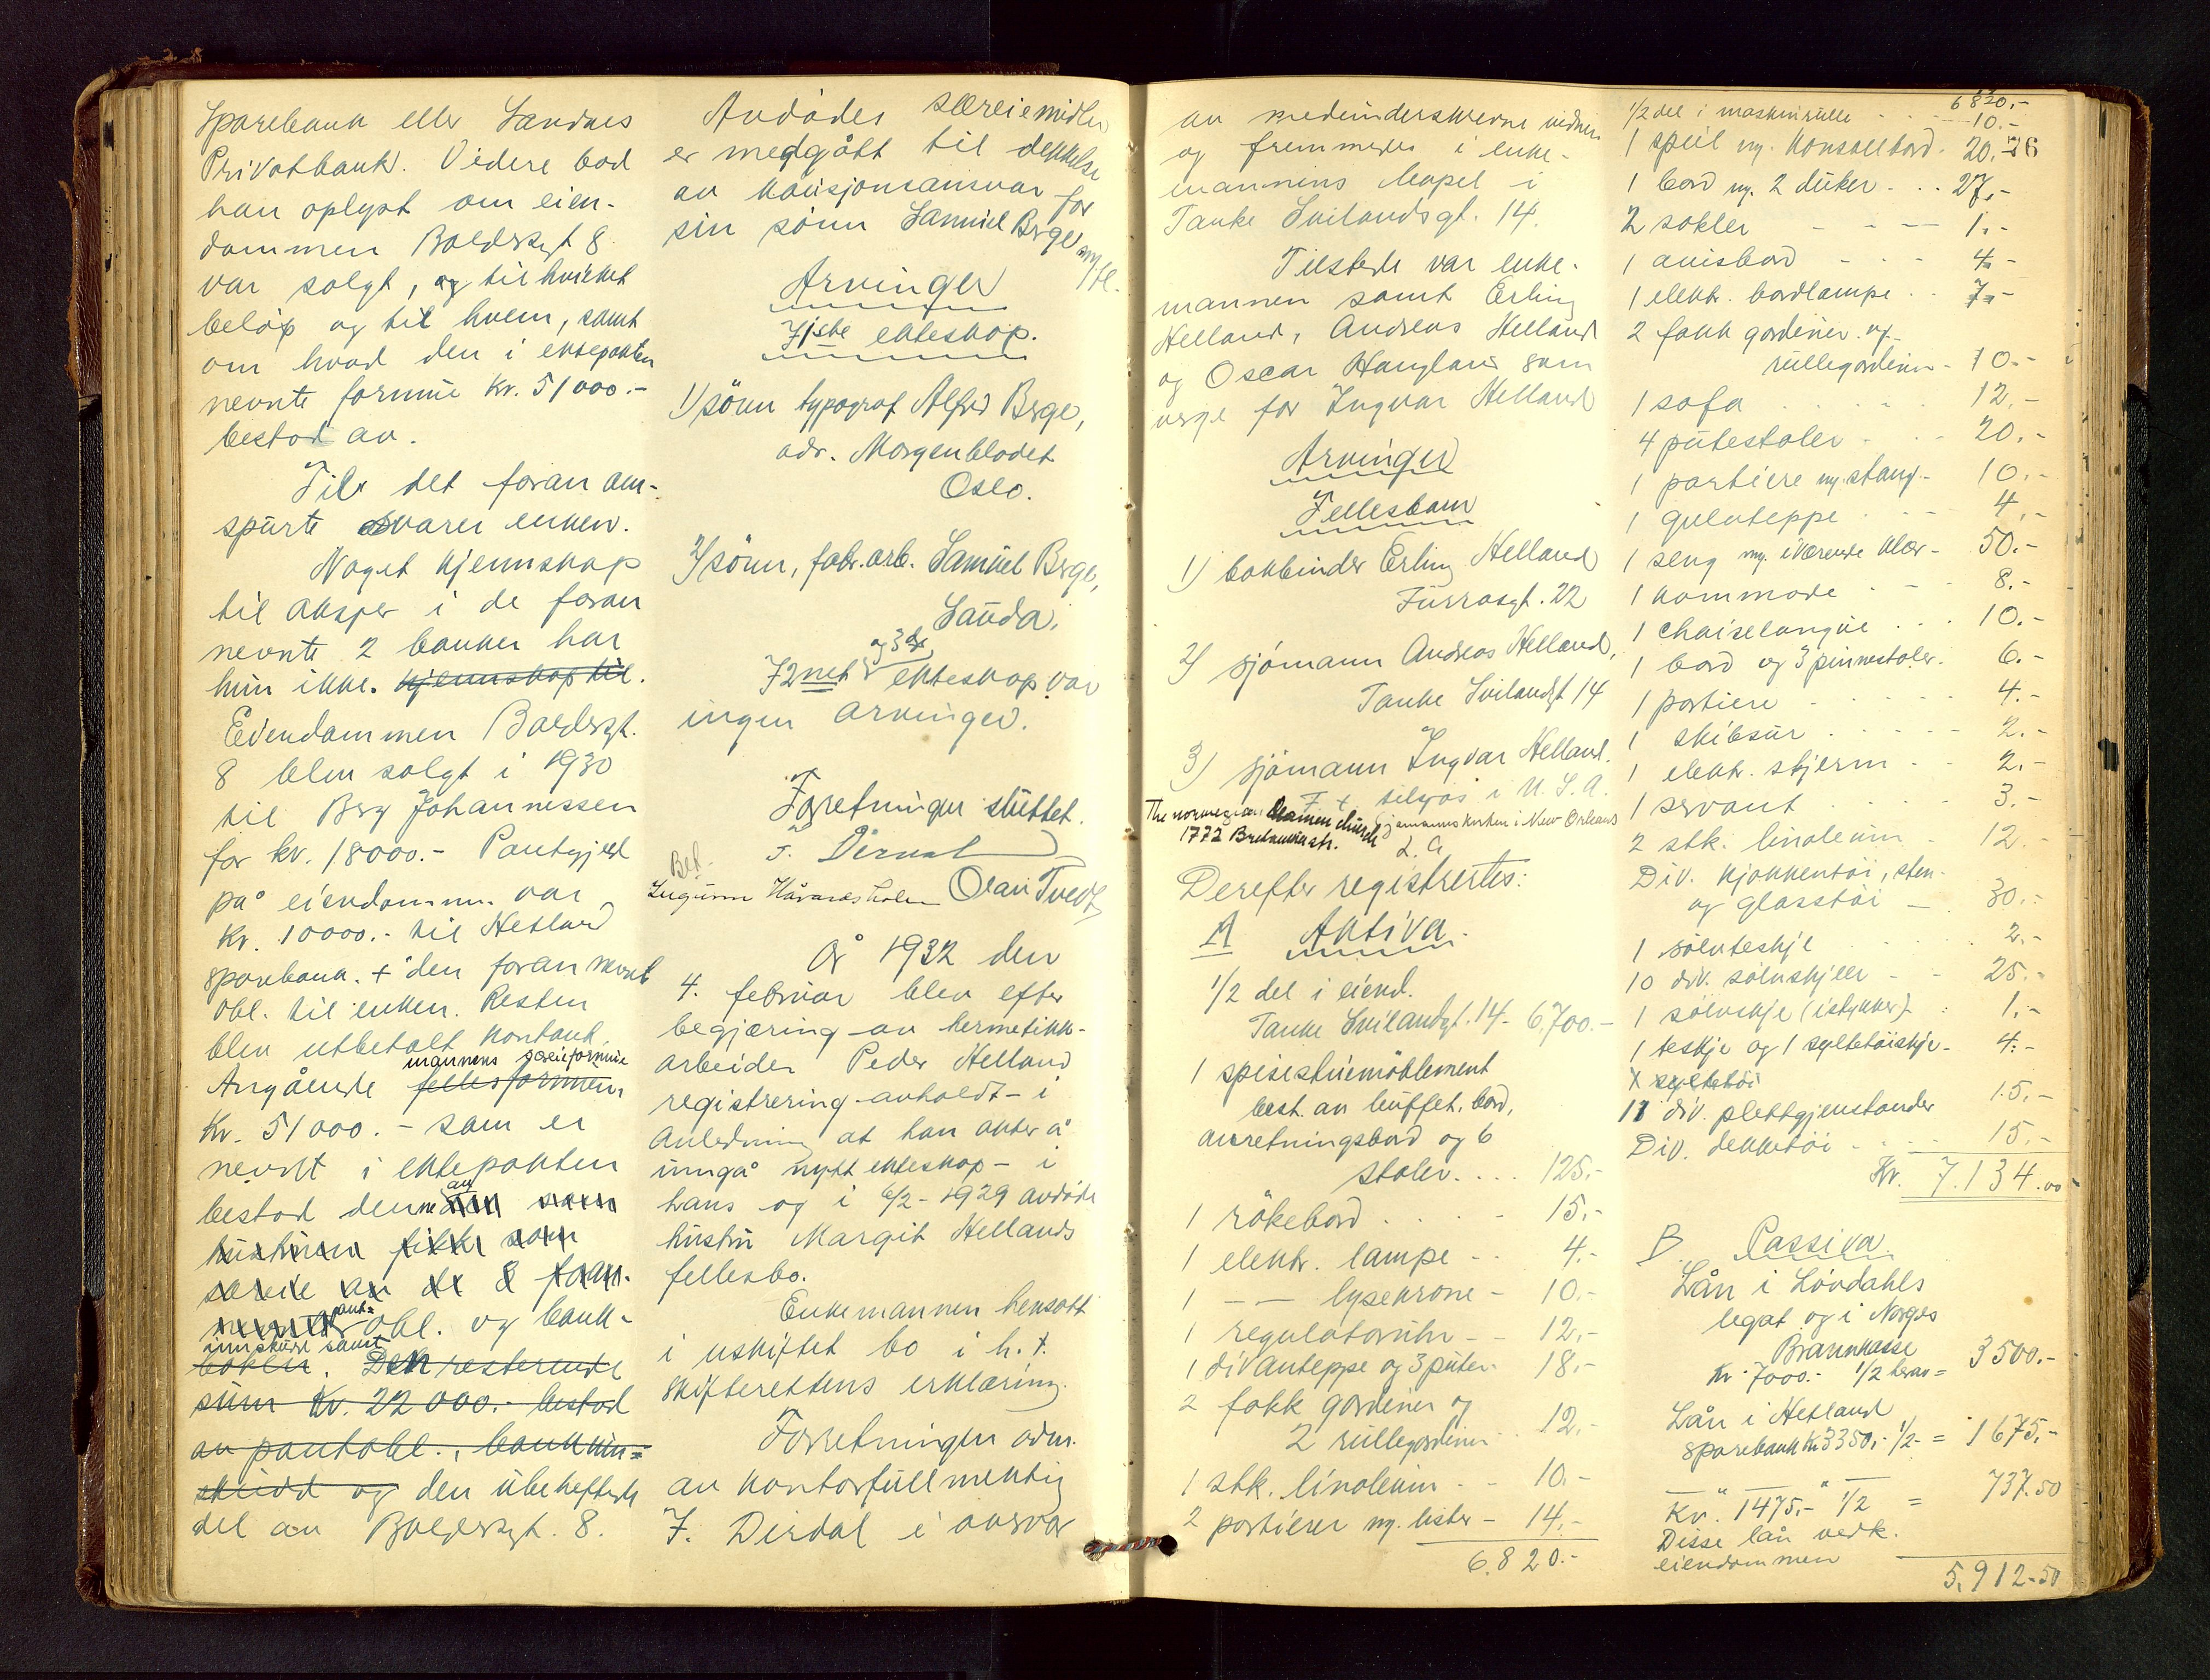 Sparebank eller Sandnes
Privatbank. Videre bad
han oplyst om eien-
dommen Boldsgt 8
var solgt, og til hvilket
beløp og til hvem, samt
om hvad den i ektepakten
nevnte formue Kr. 51000.-
bestod av.
Til det foran om-
spurte svarer enken.
Noget kjennskap
til aksjer i de foran
nevnte 2 banker har
hun ikke. kjennskap til.
Eiendommen Boldsgt.
8 blev solgt i 1930
til Berg Johannessen
for kr. 18000.- Pantgjeld
på eiendommen var
Kr. 10000.- til Hetland
sparebank. + den foran nevnte
obl. til enken. Resten
blev utbetalt kontant.
mannens særeieformue
Angående fellesformuen
Kr. 51000.- som er
nevnt i ektepakten
bestod denne av som
hustruen fikk som
særeie av de 2 foran-
pant-
nevnte obl. og bank-
innskudd samt
boken. Den resterende
sum Kr. 22000.- bestod
av pantobl., bankinn-
skudd og den ubeheftede
del av Boldsgt. 8.
Avdødes særeiemidler
er medgått til dekkelse
av kausjonsansvar for
sin sønn Samuel Berge
m/fl.
Arvinger
I 1ste ekteskap.
1) sønn typograf Alfred Berge,
adr. Morgenbladet
Oslo.
2) sønn, fabr.arb. Samuel Berge,
Sauda.
og 3dje
I 2net ekteskap var
ingen arvinger.
Forretningen sluttet.
F. Dirdal
Bet.
Ingunn Håvarsholm Olav Tvedt
År 1932 den
4. februar blev efter
begjæring av hermetikk-
arbeider Peder Helland
registrering avholdt i
anledning at han akter å
inngå nytt ekteskap - i
hans og i 6/2-1929 avdøde
hustru Margit Hellands
fellesbo.
Enkemannen hensatt
i uskiftet bo i h.t.
skifterettens erklæring.
Forretningen adm.
av kontorfullmektig
F. Dirdal i nærvær
av medunderskrevne vidner
og fremmedes i enke-
mannens bopel i
Tanke Svilandsgt. 14.
Tilstede var enke-
mannen samt Erling
Helland, Andreas Helland
og Oscar Haugland som
verge for Ingvar Helland
Arvinger
Fellesbarn
1) bokbinder Erling Helland
Furrasgt. 22
2) sjømann Andreas Helland,
Tanke Svilandsgt 14
3) sjømann Ingvar Helland.
F. t. tilsjøs i U.S.A.
The norwegian Seamen church sjømannskirken i New Orleans
1772 Britannia str. L. A
Derefter registrertes:
A Aktiva.
1/2 del i eiend.
Tanke Svilandsgt. 14 - 6.700.-
1 spisestuemøblement
best. av buffet, bord,
anretningsbord og 6
stoler.... 125.-
1 røkebord . . . - 15.-
1 elektr. lampe - - 4.-
1 - - lysekrone - 10.-
1 regulatoruhr - - 12.-
1 divanteppe og 3 puter - 18.-
2 fakk gardiner og
2 rullegardiner - 12.-
1 stk. linoleum - - 10.-
2 portierer m. lister - 14.-
6.820.-
6820.-
1/2 del i maskinrulle - - - 10.-
76
1 speil m. konsollbord. 20.-
1 bord m. 2 duker - .. 27.-
2 sokler - - - 1.-
1 avisbord - - - 4.-
1 elektr. bordlampe .. 7.-
2 fakk gardiner og
rullegardiner - 10.-
1 sofa . . . . 12.-
4 putestoler . . - 20.-
1 portiere m. stang - 10.-
1 gulvteppe . - - 4.-
1 seng m. iværende klær - 50.-
1 kommode . - - 8.-
1 chaiselongue ... 10.-
1 bord og 3 pinnestoler. 6.-
1 portiere . - - - 4.-
1 skibsur . . . - - 2.-
1 elektr. skjerm - - 2.-
1 servant . . . . 3.-
2 stk. linoleum - - 12.-
Div. kjøkkentøi, sten-
og glasstøi - . 30.-
1 sølvteskje . . . 2.-
10 div. sølvskjeer - - 25.-
1 sølvskje (istykker) : 1.-
1 teskje og 1 syltetøiskje - 4.-
X syltetøi
11 div. plettgjenstander 15.-
Div. dekketøi - - - - 15.-
Kr. 7.134.00
B. Passiva.
Lån i Løvdahls
legat og i Norges
Brannkasse
Kr 7000.- 1/2 herav = 3500.-
Lån i Hetland
sparebank Kr. 3350,- 1/2 - = 1675.-
— " — " —
Kr. 1475.- 1/2 = 737.50
Disse lån vedk.
eiendommen
5.912.50